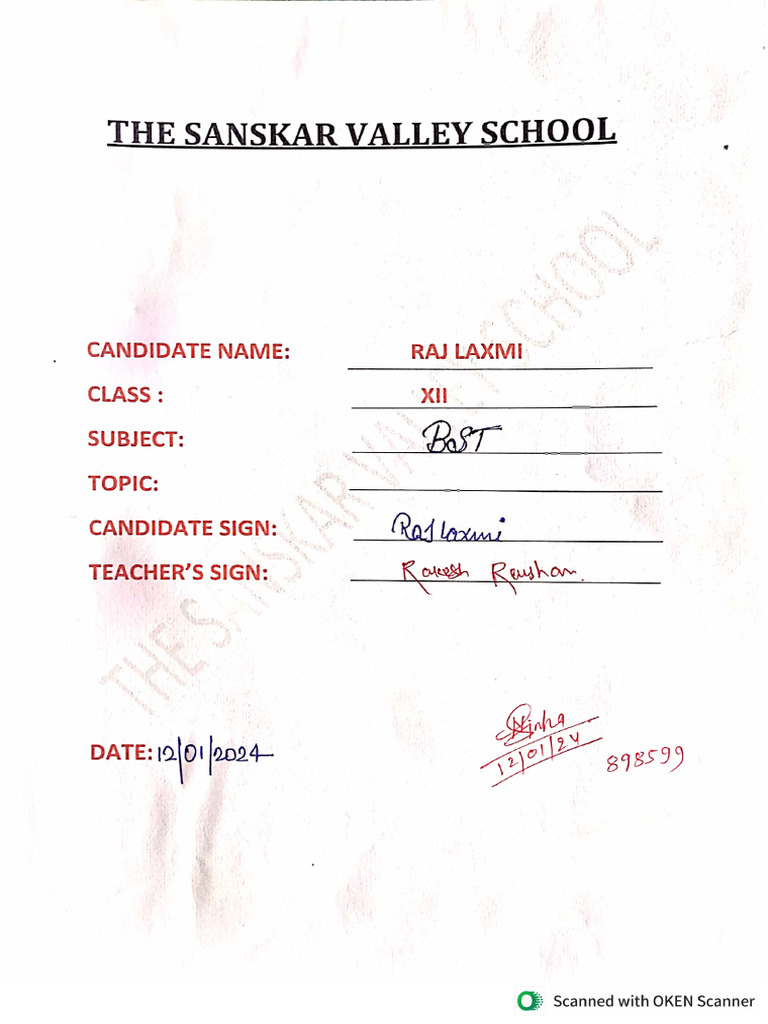 THE SANSKAR VALLEY SCHOOL
THE SANSKAR VALLEY SCHOOL
CANDIDATE NAME: RAJ LAXMI
CLASS : XII
SUBJECT: BST
TOPIC:
CANDIDATE SIGN: Raj Laxmi
TEACHER'S SIGN: Rakesh Raushan
Sinha
DATE: 12/01/2024
12/01/24
898599
Scanned with OKEN Scanner